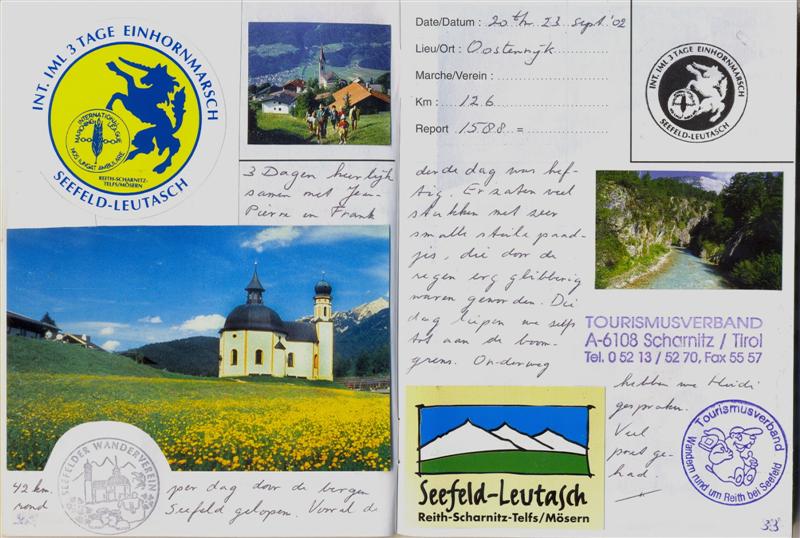 INT. IML 3 TAGE EINHORNMARSCH
INTERNATIONAL MARCHING LEAGUE
NOS IUNGAT AMBULARE
REITH-SCHARNITZ-
TELFS/MÖSERN
SEEFELD-LEUTASCH
3 Dagen heerlijk
samen met Jean
Pierre en Frank
SEEFELDER WANDERVEREIN
42 km. per dag door de bergen
rond Seefeld gelopen. Vooral de
Date/Datum : 20 t/m 23 sept. '02
Lieu/Ort : Oostenrijk
Marche/Verein :
Km : 126
Report 1588 =
INT. IML 3 TAGE EINHORNMARSCH
SEEFELD-LEUTASCH
derde dag was hef-
tig. Er zaten veel
stukken met zeer
smalle steile paad-
jes, die door de
regen erg glibberig
waren geworden. Die
dag liepen we zelfs
tot aan de boom-
grens. Onderweg
TOURISMUSVERBAND
A-6108 Scharnitz / Tirol
Tel. 0 52 13 / 52 70, Fax 55 57
hebben we Heidi
gesproken.
Veel
pret ge-
had.
Seefeld-Leutasch
Reith-Scharnitz-Telfs/Mösern
Tourismusverband
Wandern rund um Reith bei Seefeld
33